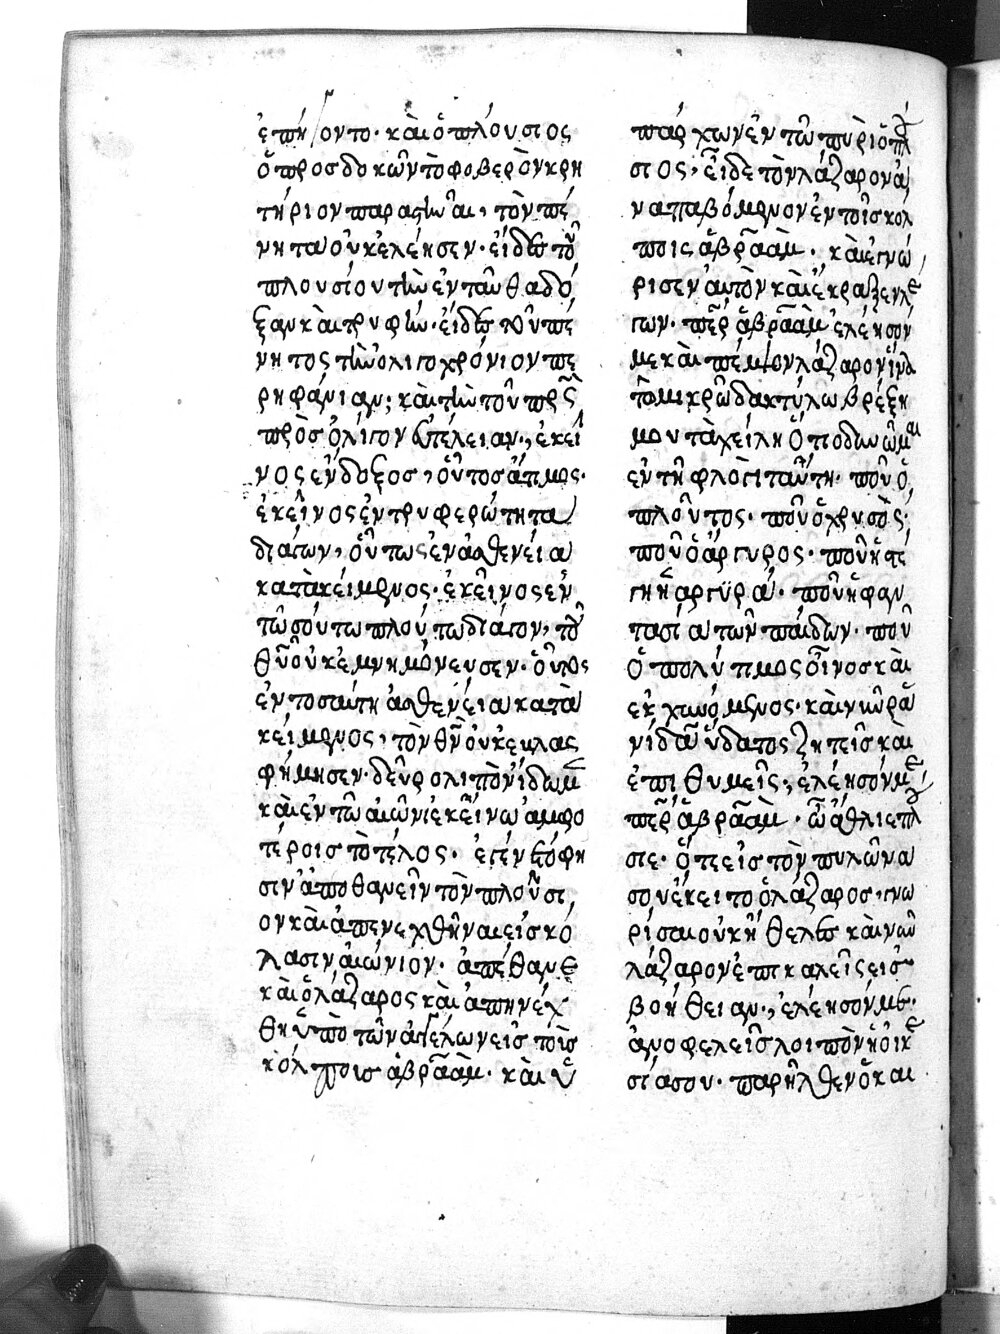 ἐπήγοντο· καὶ ὁ πλούσιος
ὁ προσδοκῶν τὸ φοβερὸν κρη
τήριον παραστῆναι, τὸν πέ
νητα οὐκ ἐλέησεν· εἶδες τοῦ
πλουσίου τὴν ἐνταῦθα δό
ξαν καὶ τρυφήν· εἶδες τοῦ πέ
νητος τὴν ὀλιγοχρόνιον πε
ρηφάνιαν; καὶ τὴν τοῦ πρς
πρὸς ὀλίγον εὐτέλειαν, ἐκεῖ
νος ἔνδοξος, οὗτος ἄτιμος·
ἐκεῖνος ἐν τρυφερώτητα
διάγων, οὗτως ἐν ἀσθενεία
κατακείμενος· ἐκεῖνος ἐν
τῶ σούτω πλούτω διάγον, τοῦ
θυ οὐκ ἐμνημόνευσεν· οὗτος
ἐν τοσαύτη ἀσθενεία κατα
κείμενος, τὸν θν οὐκ ευλας
φήμησεν· δεῦρο λιπὸν ἴδωμεν
καὶ ἐν τῶ αἰώνι ἐκεῖνω ἀμφο
τέροις τὸ τέλος· ἐγένετο φη
σιν ἀποθανεῖν τὸν πλούσι
ον καὶ ἀπενεχθῆναι εἰς κό
λασιν αἰώνιον· ἀπέθανε
καὶ ὁ λάζαρος καὶ ἀπηνέχ
θη ὑπὸ τῶν ἀγγέλων εἰς τοῖς
κόλποις ἀβραὰμ· καὶ ὑ
πάρχων ἐν τῶ πυρὶ ὁ πλού
σιος, εἶδε τὸν λάζαρον ἀ
ναπαβόμενον ἐν τοῖς κόλ
ποις ἀβραὰμ· καὶ ἐγνώ
ρισεν αὐτὸν καὶ ἔκραξεν λέ
γων· περ ἀβραὰμ ἐλέησόν
με καὶ πέμψον λάζαρον ἵνα
τῶ μικρῶ δακτύλω βρέξη
μου τὰ χείλη ὅτι ὀδυνῶμαι
ἐν τῆ φλογὶ ταύτη· ποῦ ὁ
πλοῦτος· ποῦ ὁ χρυσὸς·
ποῦ ὁ ἄργυρος· ποῦ ἡ στέ
γη ἡ ἀργύρά· ποῦ ἡ φαν
τασία τῶν παίδων· ποῦ
ὁ πολύτιμος οἶνος καὶ
ἐκχυνόμενος· καὶ νῦν ῥα
νίδα ὕδατος ζητεῖς καὶ
ἐπιθυμεῖς, ἐλέησόν με
περ ἀβραὰμ· ὦ ἄθλιε πλού
σιε· ὅτε εἰς τὸν πυλῶνα
σου ἔκειτο ὁ λάζαρος, γνω
ρίσαι οὐκ ἤθελες καὶ νῦν
λάζαρον ἐπικαλεῖς εἰς
βοήθειαν, ἐλέησόν με·
ἀνοφελεῖς λοιπὸν ἡ οἰκε
σία σου· παρῆλθεν ὁ και